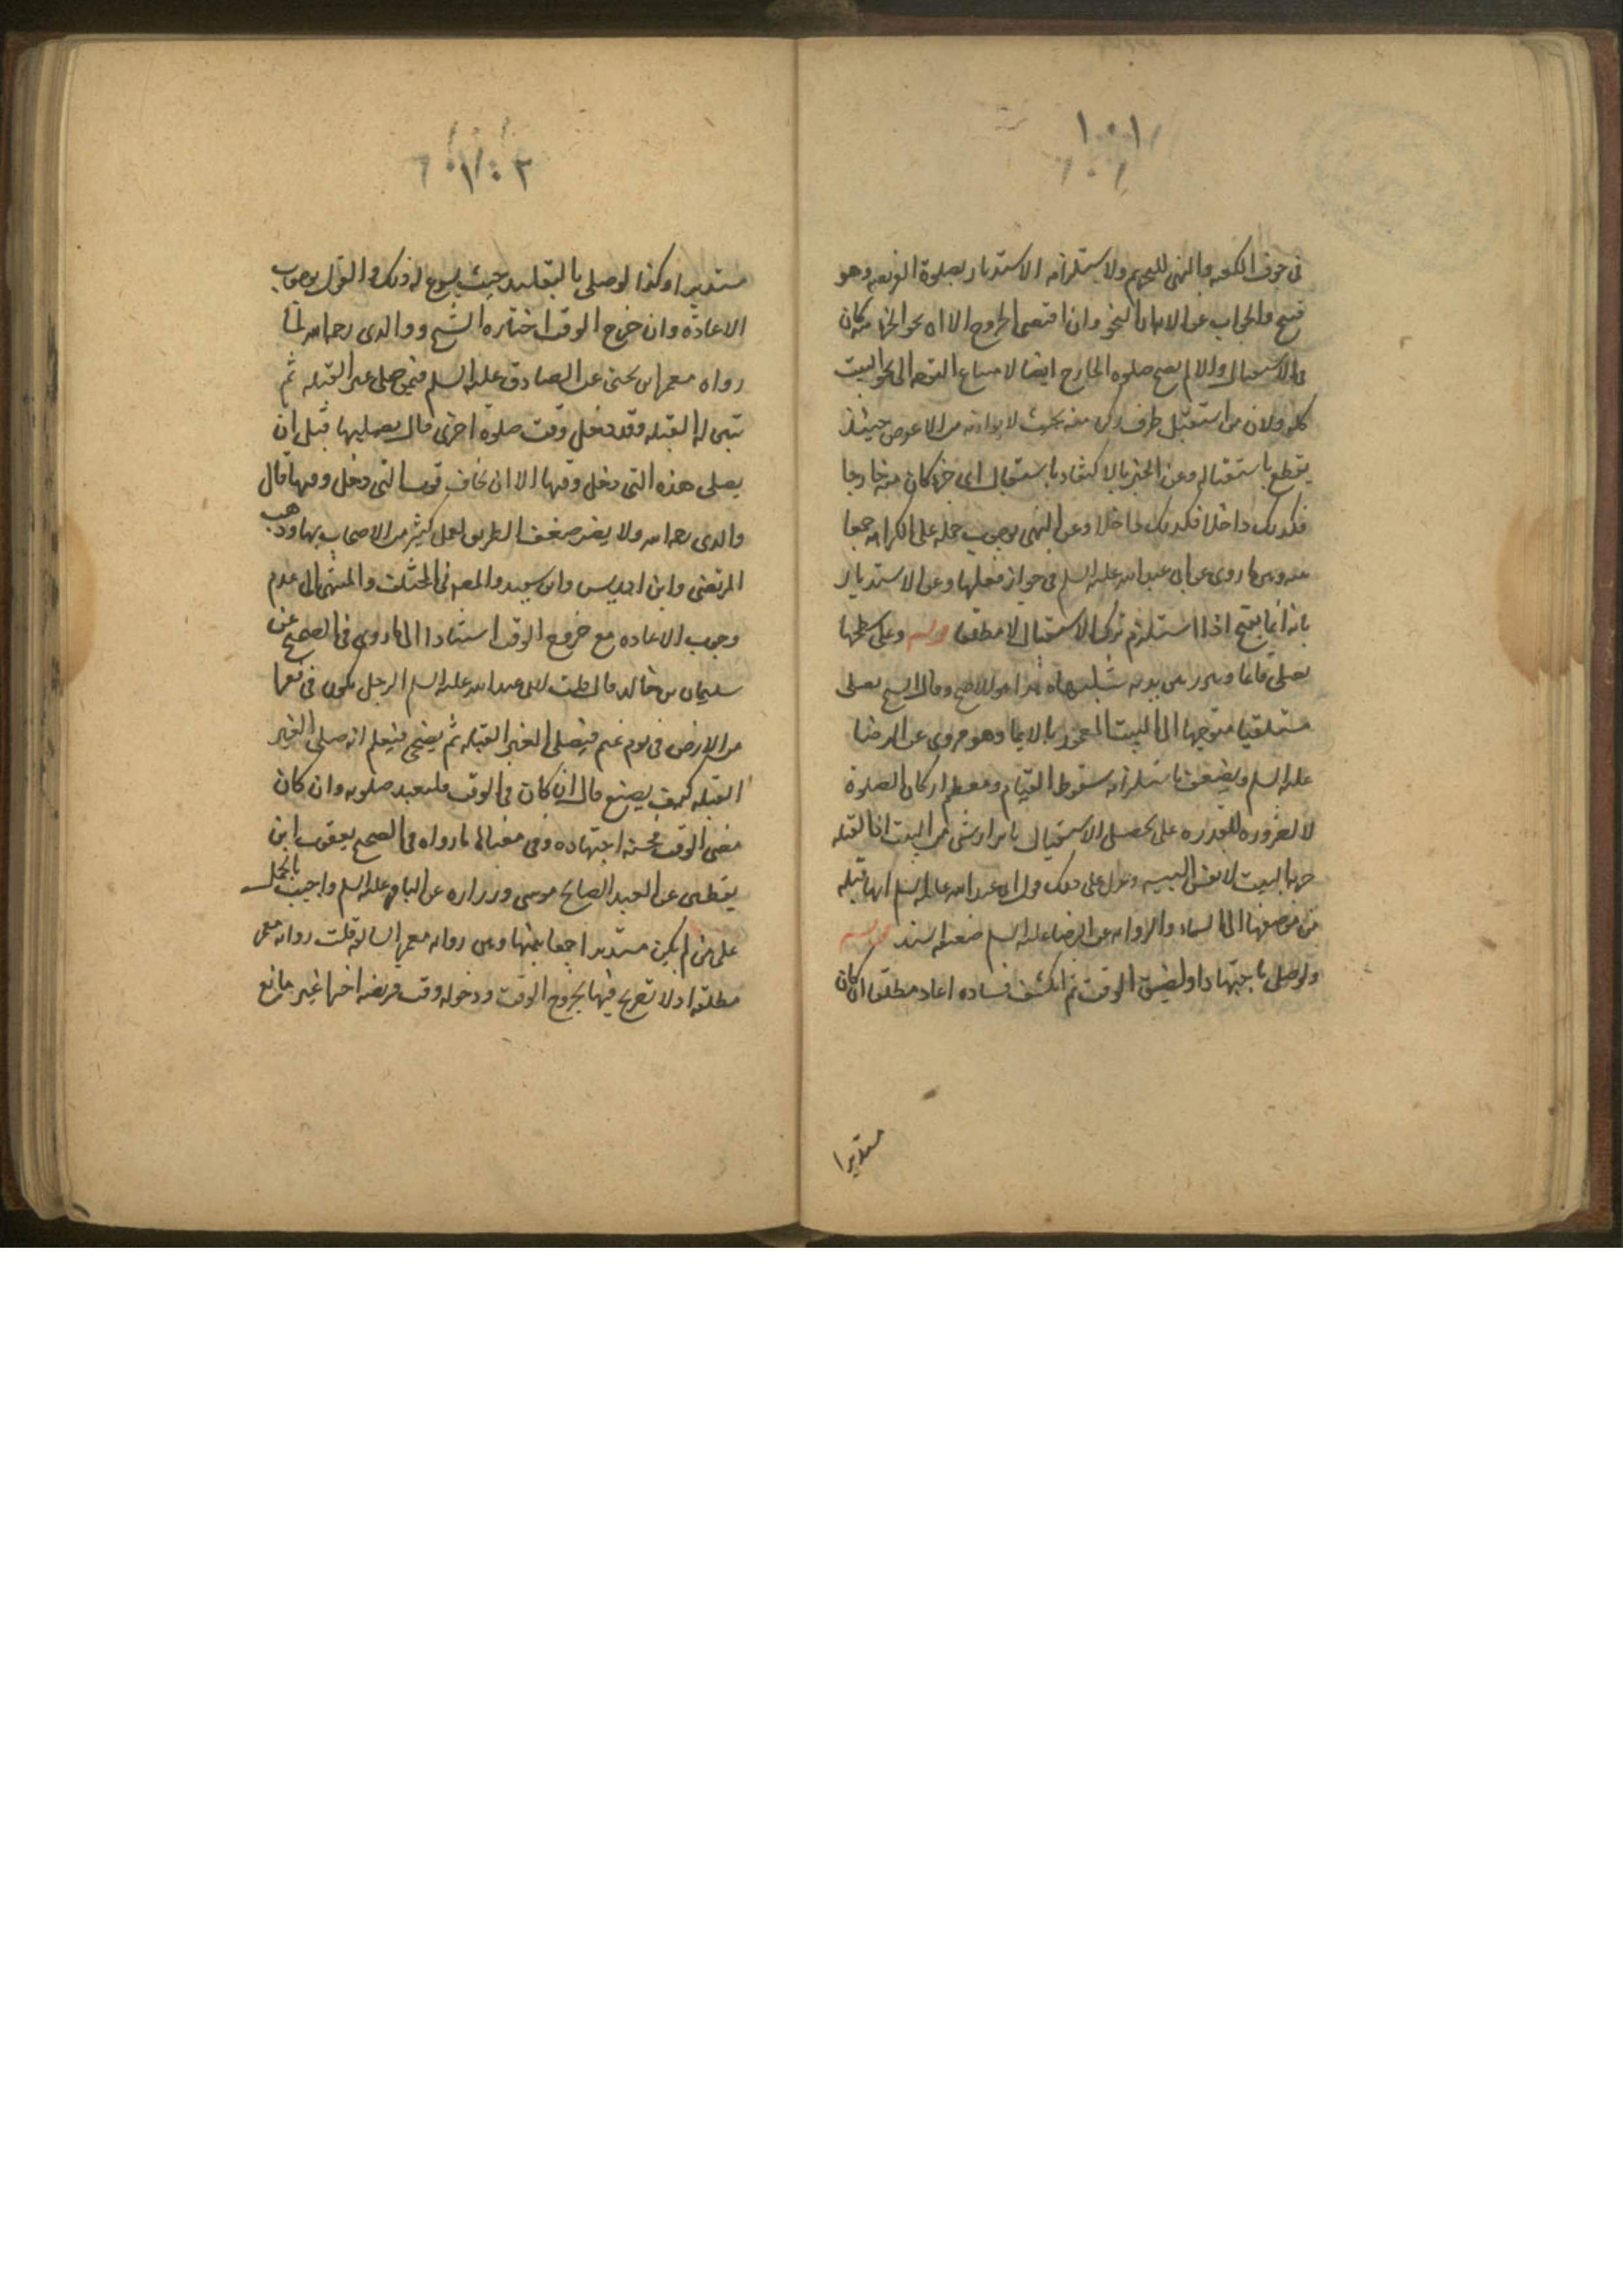 ١٠١
فى جوف الكعبه والنهى للتحريم ولاستلزامه الاستدبار بصلوة الفريضه وهو
قبيح والجواب عن الامان النحو وان اقتضى الخروج الا ان نحو الجزء منه كان
فى الاستقبال والا لم يصح صلوه الخارج ايضا لامتناع التوجه الى نحو البيت
كله ولان من استقبل طرف ركن منه بحيث لا يوازنه من الاعوض حينئذ
يقطع باستقباله وعن الخبر بالاكتفاء باستقبال اى جزء كان منه خارجا
فكذلك داخلا فكذلك داخلا وعن النهى بوجوب حمله على الكراهه جمعا
بينه وبين ما روى عن ابى عبد الله عليه السلم فى جواز فعلها وعن الاستدبار
بانه انما يقبح اذا استلزم ترك الاستقبال لا مطلقا قوله وعلى سطحها
يصلى قائما ويبرز بين يديه شيئا منها هذا هو الاصح وقال الشيخ يصلى
مستلقيا متوجها الى البيت المعمور بالايما وهو مروى عن الرضا
عليه السلم ويضعف باستلزامه سقوط القيام ومعظم اركان الصلوة
لا لضروره للقدره على تحصيل الاستقبال بابراز شى من البيت اذ القبله
جهة البيت لا نفس البنيه ويدل على ذلك قول ابى عبد الله عليه السلم انها قبله
من موضعها الى السماء والروايه عن الرضا عليه السلم ضعيفه السند قوله
ولو صلى باجتهاد او لضيق الوقت ثم انكشف فساده اعاد مطلقا ان كان
مستدبرا
١٠٢
مستدبرا وكذا لو صلى بالتقليد حيث يسوغ له ذلك والقول بوجوب
الاعادة وان خرج الوقت اختاره الشيخ ووالدى رحمه الله لما
رواه معمر بن يحيى عن الصادق عليه السلم فيمن صلى على غير القبله ثم
تبين له القبله وقد دخل وقت صلوة اخرى قال يصليها قبل ان
يصلى هذه التى دخل وقتها الا ان يخاف فوت التى دخل وقتها قال
والدى رحمه الله ولا يضر ضعف الطريق لعمل كثير من الاصحاب بها وذهب
المرتضى وابن ادريس وابن سعيد والمصنف فى المختلف والمنتهى الى عدم
وجوب الاعاده مع خروج الوقت استنادا الى ما روى فى الصحيح عن
سليمان بن خالد قال قلت لابى عبد الله عليه السلم الرجل يكون فى قفر
من الارض فى يوم غيم فيصلى لغير القبله ثم يضحى فيعلم انه صلى لغير
القبله كيف يصنع قال ان كان فى الوقت فليعد صلوته وان كان
مضى الوقت فحسبه اجتهاده وفى معناها ما رواه فى الصحيح يعقوب ابن
يقطين عن العبد الصالح موسى وزراره عن الباقر عليه السلم واجيب بالحمل
على من لم يكن مستدبرا جمعا بينها وبين روايه معمر السالفه قلت روايه معمر
مطلقه اذ لا تصريح فيها بخروج الوقت ودخول وقت فريضه اخرى غير مانع